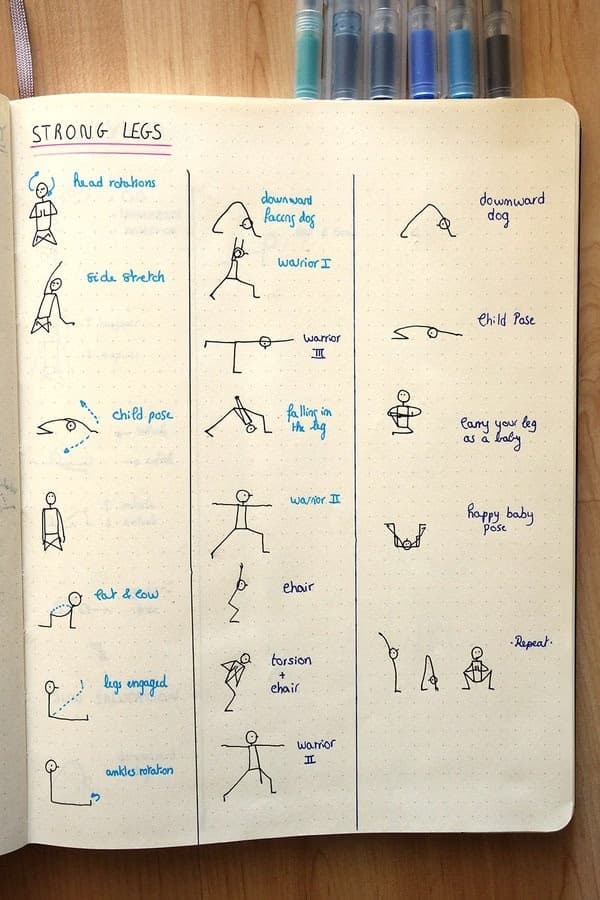 STRONG LEGS
Head rotations
Side stretch
child pose
Cat & Cow
legs engaged
ankles rotation
downward
facing dog
Warrior I
Warrior
III
falling in
the leg
Warrior II
Chair
torsion
+
chair
Warrior
II
downward
dog
Child Pose
Carry your leg
as a baby
happy baby
pose
·Repeat·